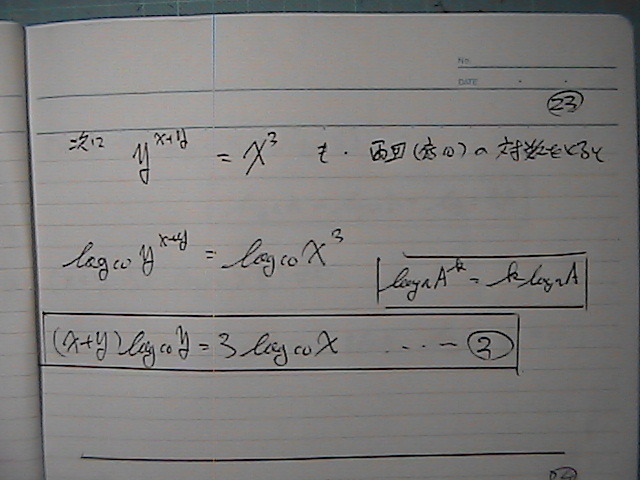 No.
DATE
㉓
次に y^{x+y} = x^3 も、両辺(底10)の対数をとると
log₁₀ y^{x+y} = log₁₀ x^3
logₐA^k = k logₐA
(x+y) log₁₀ y = 3 log₁₀ x ・・・・ ②